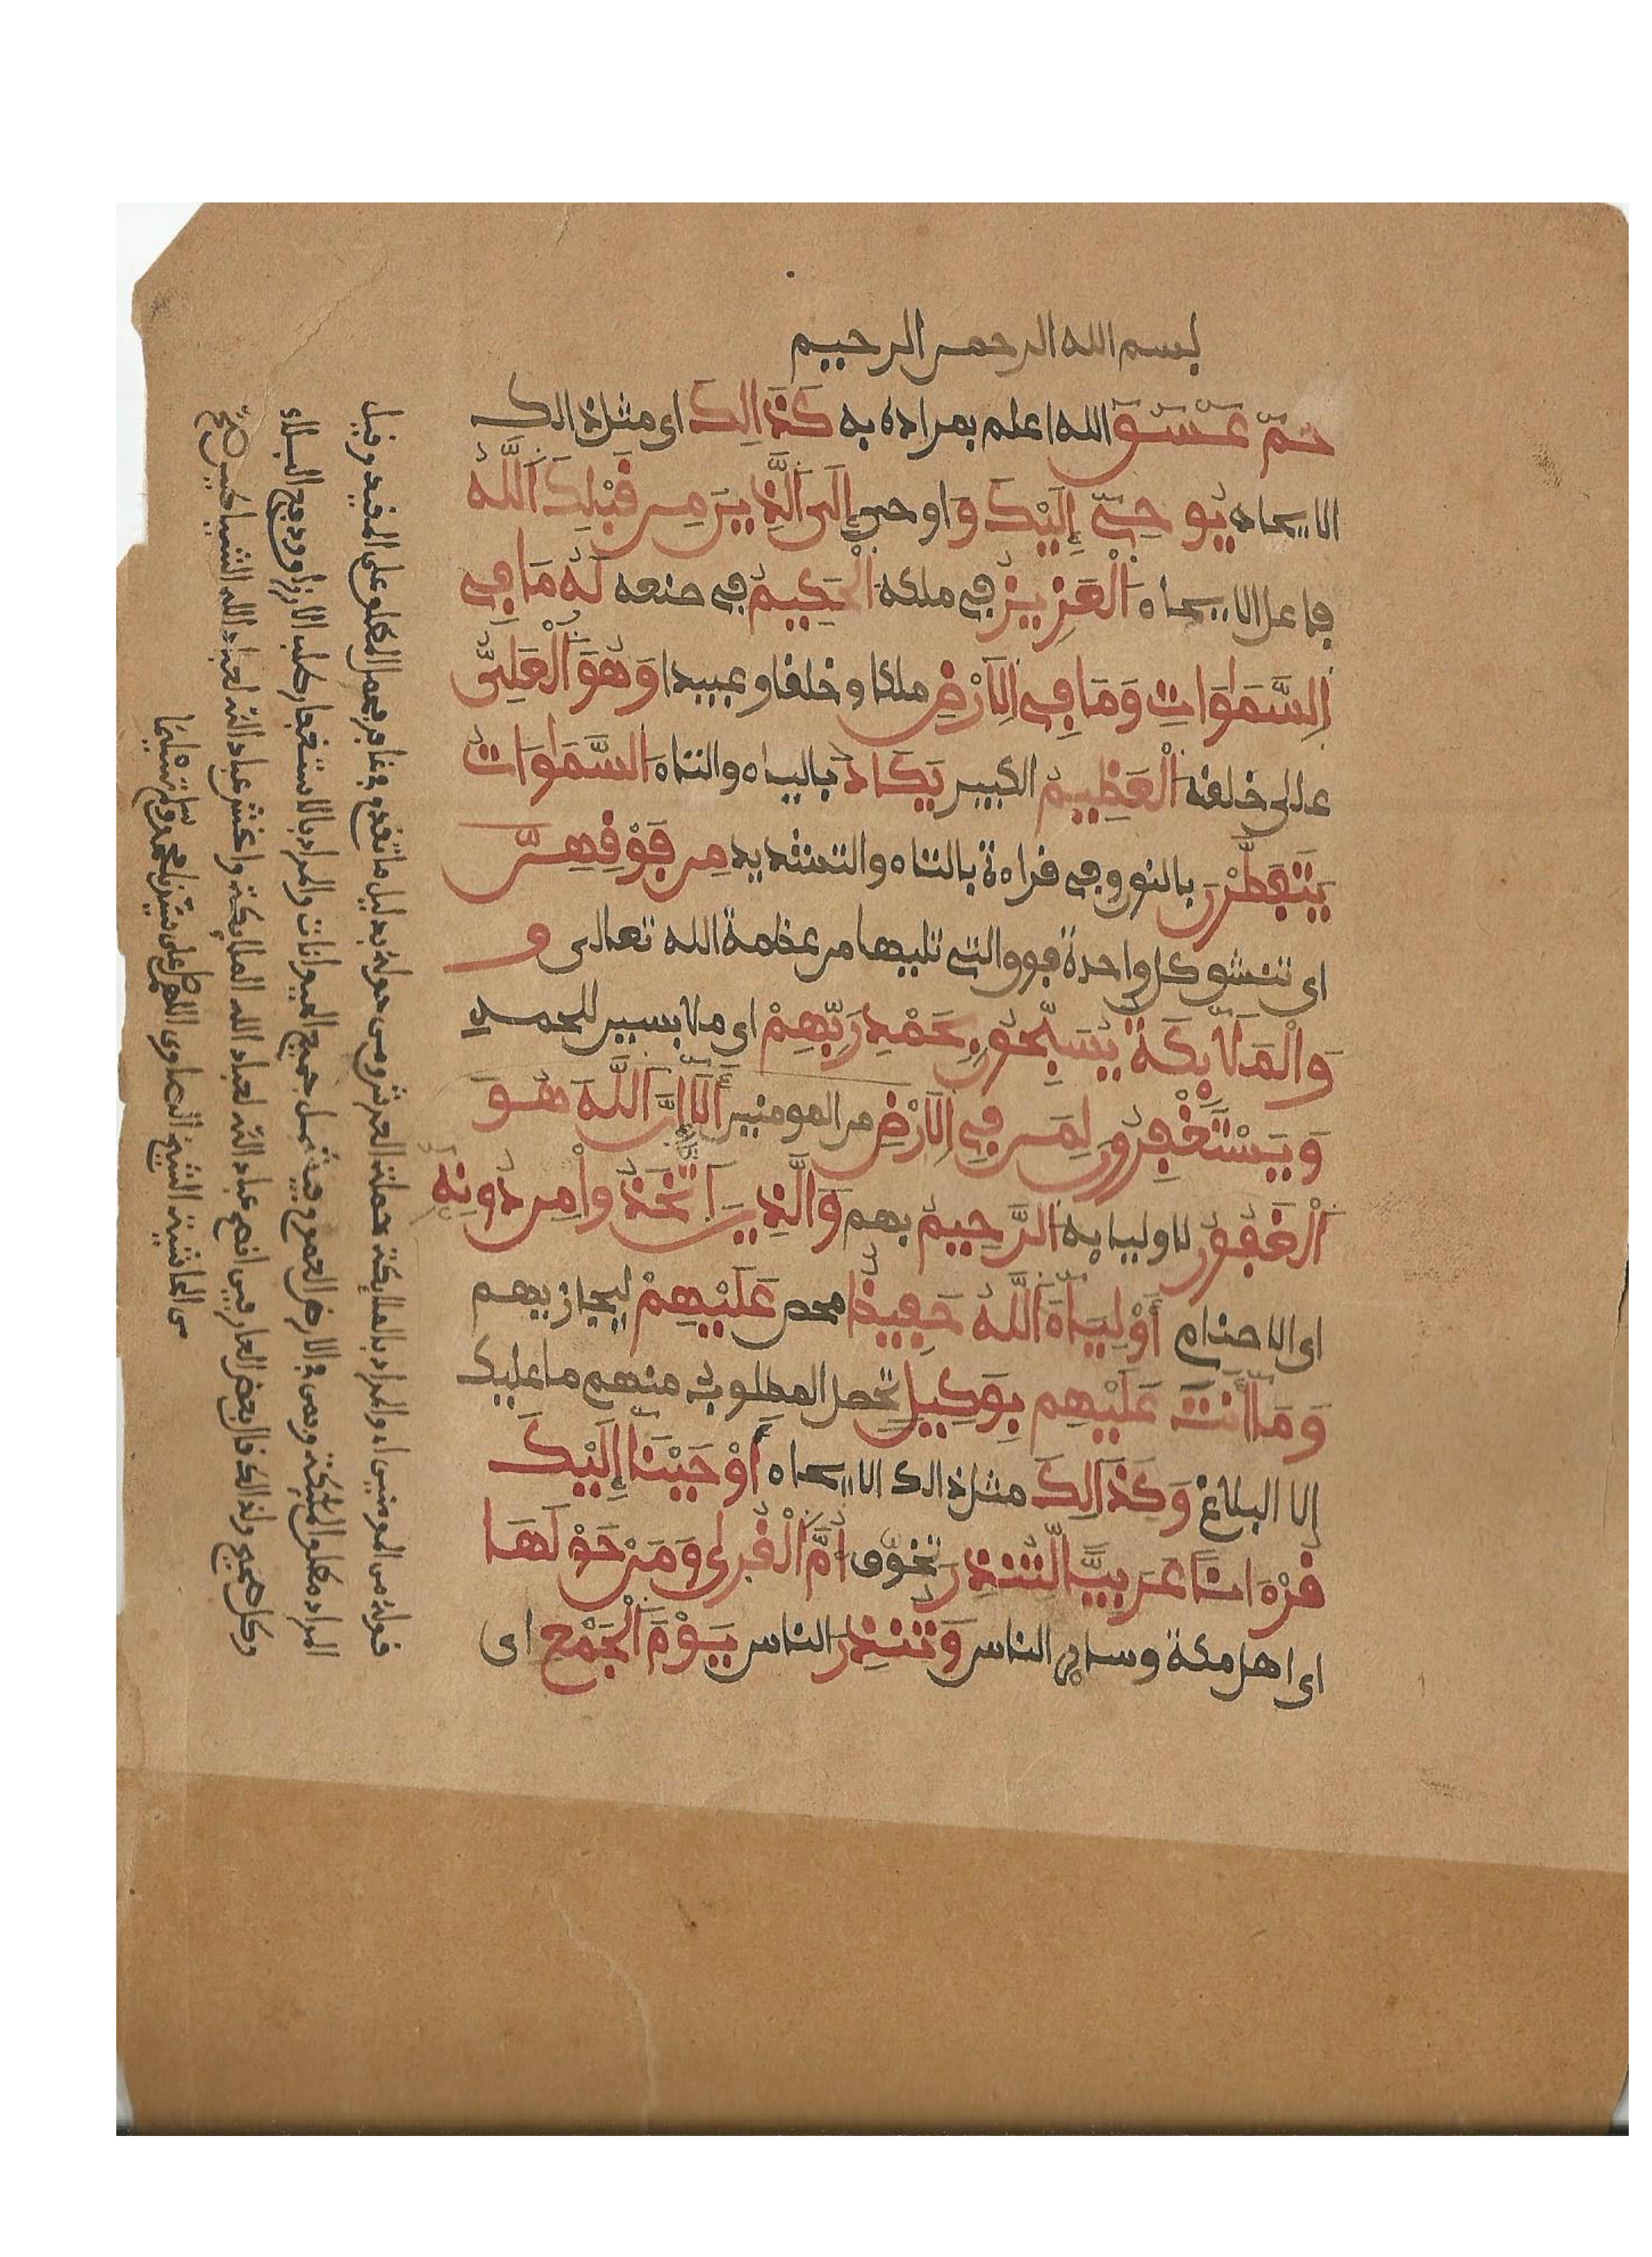 بسم الله الرحمن الرحيم
حمّ عَسَقَ الله اعلم بمراده به كَذَالِكَ اى مثل ذالك
الايحاء يُوحِىٓ إِلَيْكَ وَاوحى إِلَى اَلَّذِينَ مِن قَبْلِكَ اَللَّهُ
فاعل الايحاء اَلْعَزِيزُ فى ملكه اَلْحَكِيمُ فى صنعه لَهُ مَا فِى
اِلسَّمَٰوَاتِ وَمَا فِى اِلَارْضِ ملكا وخلقا وعبيدا وَهُوَ اَلْعَلِىُّ
على خلقه اَلْعَظِيمُ الكبير يَكَادُ بالياء والتاء اَلسَّمَٰوَاتُ
يَتَفَطَّرْنَ بالنون وفى قراءة بالتاء والتشديد مِن فَوْقِهِنَّ
اى تنشق كل واحدة فوق التى تليها من عظمة الله تعالى و
وَالْمَلَٰٓئِكَةُ يُسَبِّحُونَ بِحَمْدِ رَبِّهِمْ اى ملابسين للحمد
وَيَسْتَغْفِرُونَ لِمَن فِى اِلَارْضِ من المومنين أَلَآ إِنَّ اَللَّهَ هُوَ
اَلْغَفُورُ لاوليايه اَلرَّحِيمُ بهم وَالَّذِينَ اَتَّخَذُوا مِن دُونِهِ
اى الاصنام أَوْلِيَآءَ اَللَّهُ حَفِيظٌ محص عَلَيْهِمْ ليجازيهم
وَمَآ أَنتَ عَلَيْهِم بِوَكِيلٍ تحصل المطلوب منهم ما عليك
إلا البلاغ وَكَذَالِكَ مثل ذالك الايحاء أَوْحَيْنَآ إِلَيْكَ
قُرْءَانًا عَرَبِيًّا لِّتُنذِرَ تخوّف أُمَّ اَلْقُرَىٰ وَمَنْ حَوْلَهَا
اى اهل مكة وساير الناس وَتُنذِرَ الناس يَوْمَ اَلْجَمْعِ اى
قوله من المومنين اه والمراد بالملايكة حملة العرش ومن حوله بدليل ما تقدم فى غافر فحمل المطلق على المقيد وقيل
المراد مطلق الملئكة ومن فى الارض العموم فيشمل جميع الحيوانات والمراد بالاستغفار طلب الارزاق ودفع البلاء
من الحاشية الشيخ الصاوى اللهم صل على سيدنا محمد وسلم تسليما